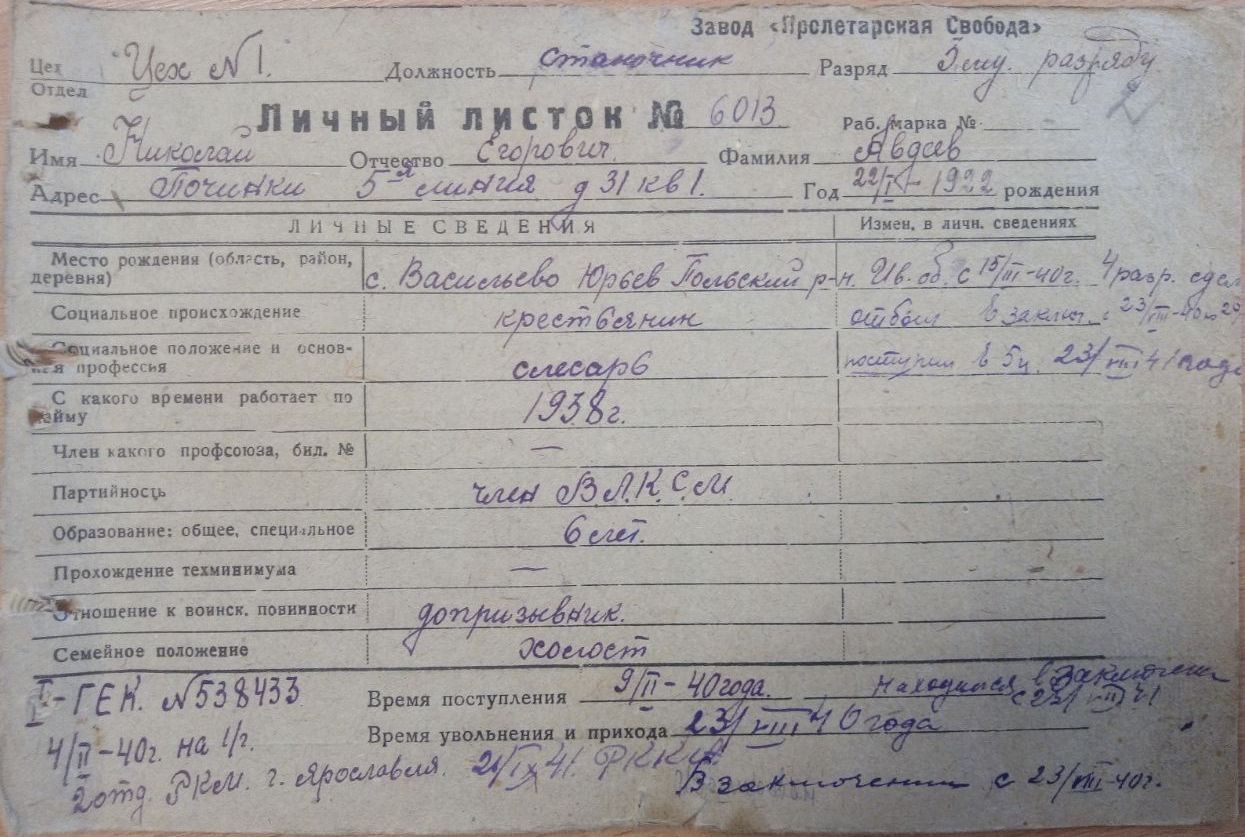 Завод «Пролетарская Свобода»
Цех Цех №1. Должность станочник Разряд 3му. разряду
Отдел 2
Личный листок № 6013 Раб. марка №
Имя Николай Отчество Егорович. Фамилия Авдеев
Адрес Починки 5-я линия д 31 кв 1. Год 22/I - 1922 рождения
ЛИЧНЫЕ СВЕДЕНИЯ Измен. в личн. сведениях
Место рождения (область, район, деревня) с. Васильево Юрьев Польский р-н. Ив. об. с 15/III-40г. 4 разр. сдел
Социальное происхождение крестьянин отбыл в заключ. с 23/VIII-40
Социальное положение и основная профессия слесарь поступил в 5ц. 23/VIII 41 года
С какого времени работает по найму 1938г.
Член какого профсоюза, бил. № —
Партийность член В.Л.К.С.М.
Образование: общее, специальное 6 лет.
Прохождение техминимума —
Отношение к воинск. повинности допризывник.
Семейное положение холост
I-ГЕК. №538433 Время поступления 9/II-40 года. находился в заключении
4/II-40г. на 1/г. Время увольнения и прихода 23/VIII 40 года
2 отд. РКМ. г. Ярославля. 41. РККА
В заключении с 23/VIII-40г.